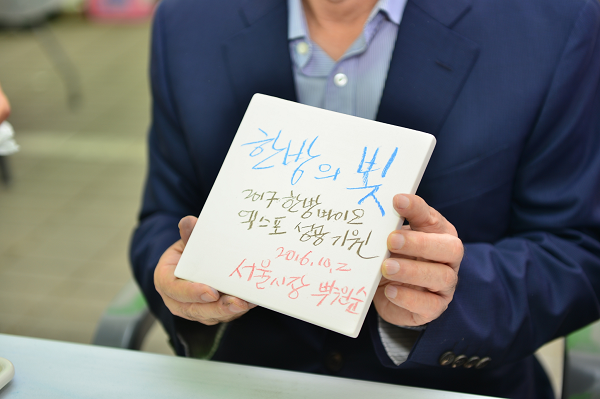 한방의 빛
2017 한방바이오
엑스포 성공 기원
2016. 10. 2
서울시장 박원순